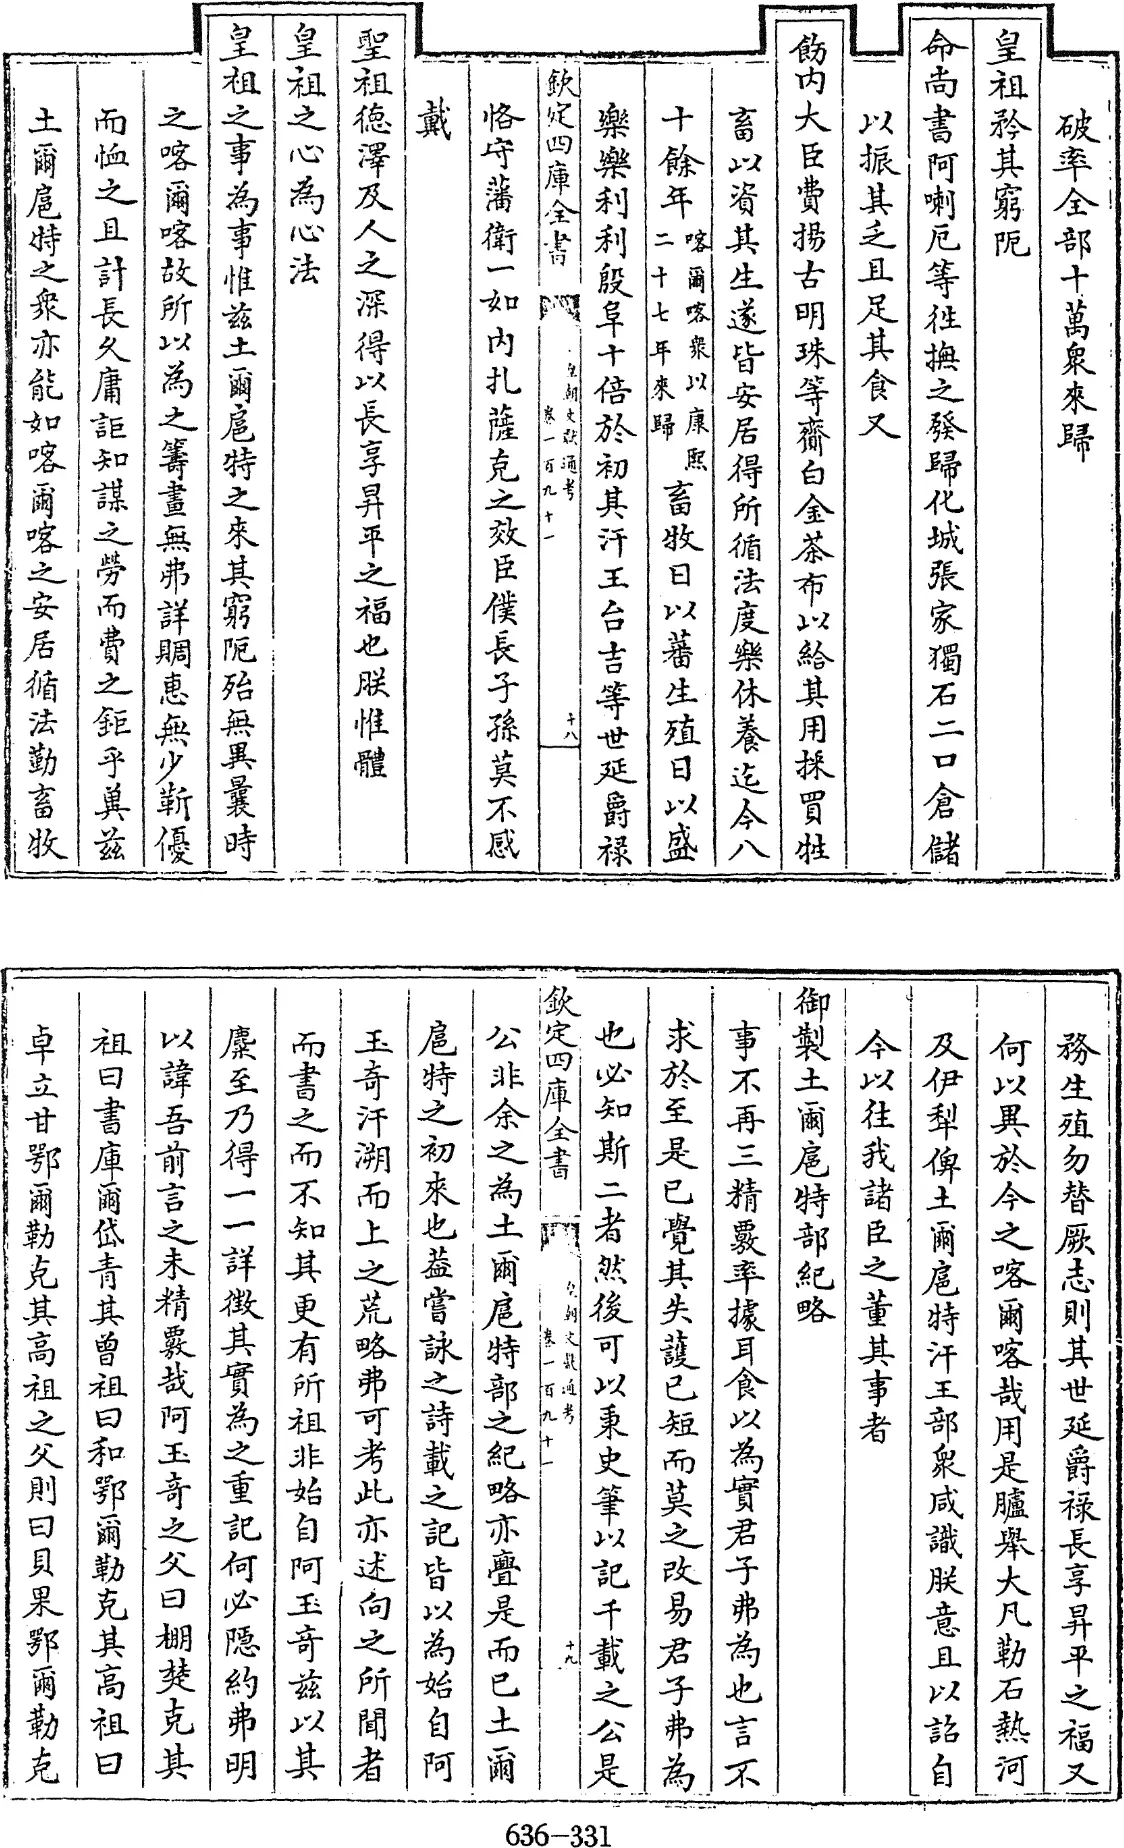 破率全部十萬衆來歸
皇祖矜其窮阨
命尚書阿喇尼等徃撫之發歸化城張家獨石二口倉儲
以振其乏且足其食又
飭内大臣費揚古明珠等齎白金茶布以給其用採買牲
畜以資其生遂皆安居得所循法度樂休養迄今八
十餘年喀爾喀衆以康熙二十七年來歸畜牧日以蕃生殖日以盛
樂樂利利殷阜十倍於初其汗王台吉等世延爵禄
欽定四庫全書
皇朝文獻通考
卷一百九十一
十八
恪守藩衛一如内扎薩克之效臣僕長子孫莫不感
戴
聖祖德澤及人之深得以長享昇平之福也朕惟體
皇祖之心為心法
皇祖之事為事惟兹土爾扈特之來其窮阨殆無異曩時
之喀爾喀故所以為之籌畫無弗詳賙惠無少靳優
而恤之且計長久庸詎知謀之勞而費之鉅乎冀兹
土爾扈特之衆亦能如喀爾喀之安居循法勤畜牧
務生殖勿替厥志則其世延爵禄長享昇平之福又
何以異於今之喀爾喀哉用是臚舉大凡勒石熱河
及伊犁俾土爾扈特汗王部衆咸識朕意且以詔自
今以往我諸臣之董其事者
御製土爾扈特部紀略
事不再三精覈率據耳食以為實君子弗為也言不
求於至是已覺其失護已短而莫之改易君子弗為
也必知斯二者然後可以秉史筆以記千載之公是
欽定四庫全書
皇朝文獻通考
卷一百九十一
十九
公非余之為土爾扈特部之紀略亦亹是而已土爾
扈特之初來也葢嘗詠之詩載之記皆以為始自阿
玉奇汗溯而上之荒略弗可考此亦述向之所聞者
而書之而不知其更有所祖非始自阿玉奇兹以其
麋至乃得一一詳徴其實為之重記何必隱約弗明
以諱吾前言之未精覈哉阿玉奇之父曰棚楚克其
祖曰書庫爾岱青其曾祖曰和鄂爾勒克其高祖曰
卓立甘鄂爾勒克其高祖之父則曰貝果鄂爾勒克
636－331